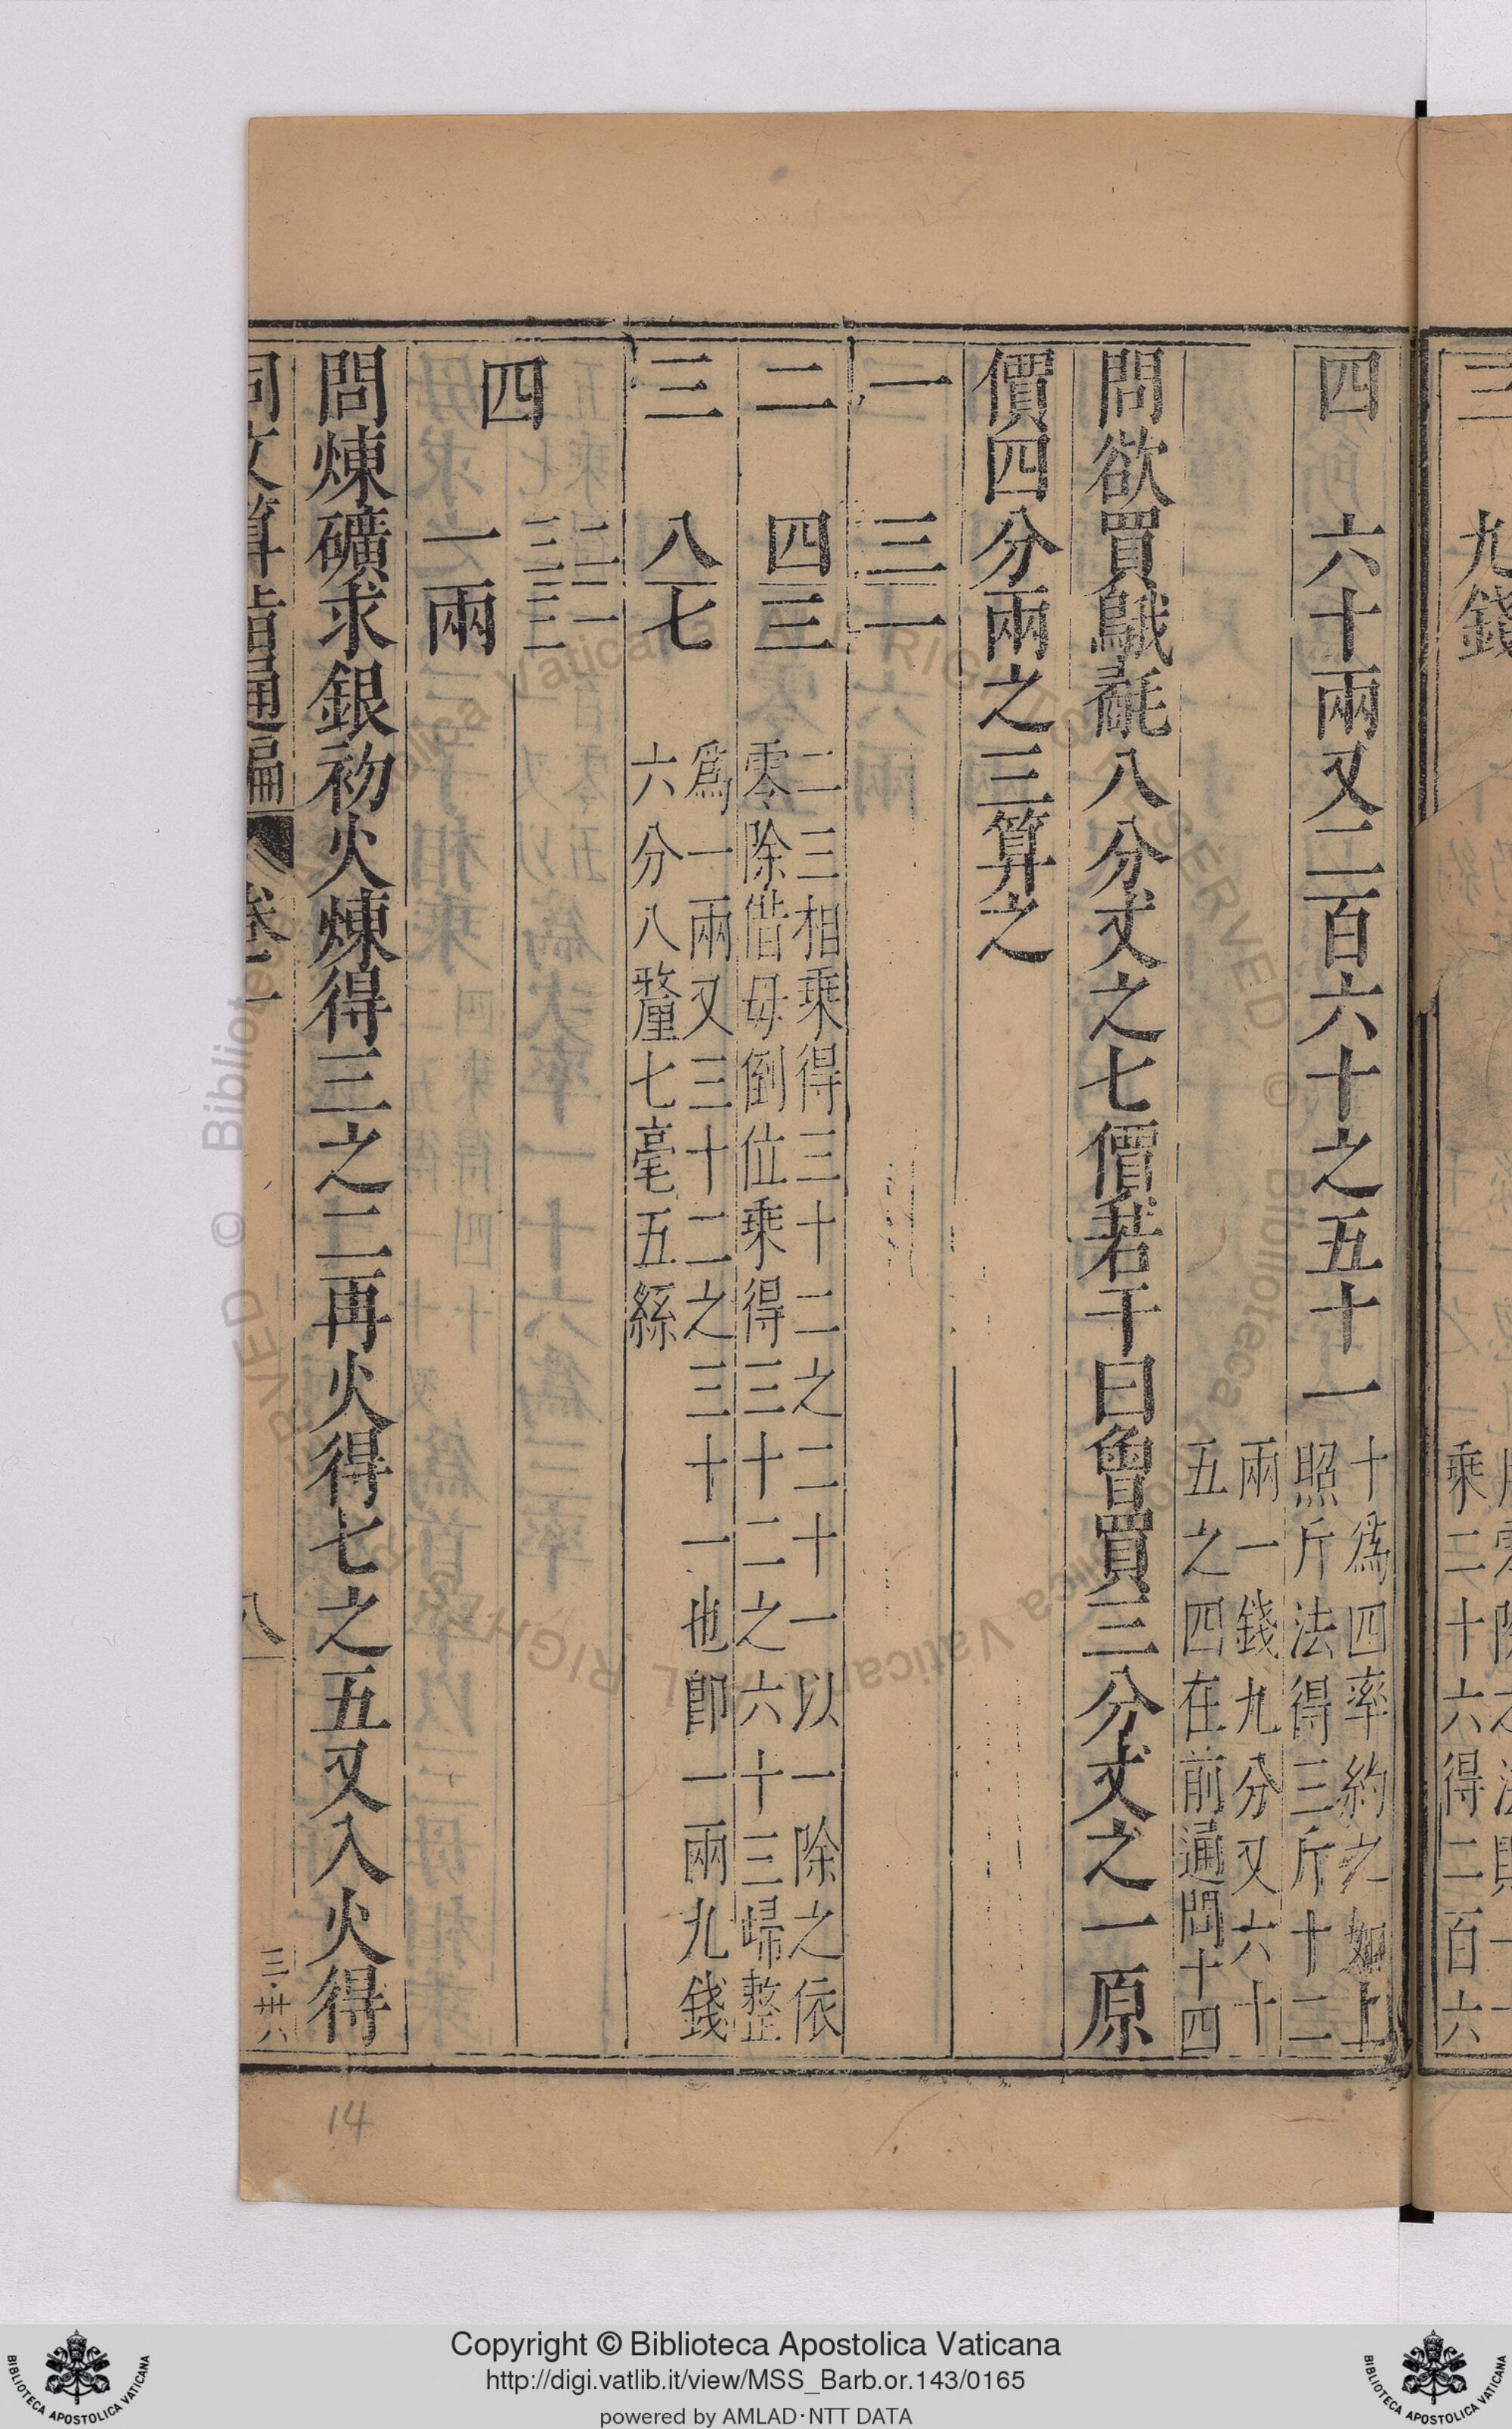 三　九錢
乘二十六得二百六
四　六十兩又二百六十之五十一
十爲四率約之如上
照斤法得三斤十二
兩一錢九分又六十
五之四在前通問十四
問欲買䳘毻八分丈之七價若干曰曾買三分丈之一原
價四分兩之三算之
一　三一
二　四三
二三相乘得三十二之二十一以一除之依
零除偕母倒位乘得三十二之六十三歸整
三　八七
爲一兩又三十二之三十一也卽一兩九錢
六分八釐七毫五絲
四　一兩
三二
三一
問煉礦求銀初火煉得三之二再火得七之五又入火得
同文算指通編　卷一　八
三・卅六
14
© Biblioteca Apostolica Vaticana ALL RIGHTS RESERVED
Copyright © Biblioteca Apostolica Vaticana
http://digi.vatlib.it/view/MSS_Barb.or.143/0165
powered by AMLAD·NTT DATA
BIBLIOTECA APOSTOLICA VATICANA
BIBLIOTECA APOSTOLICA VATICANA